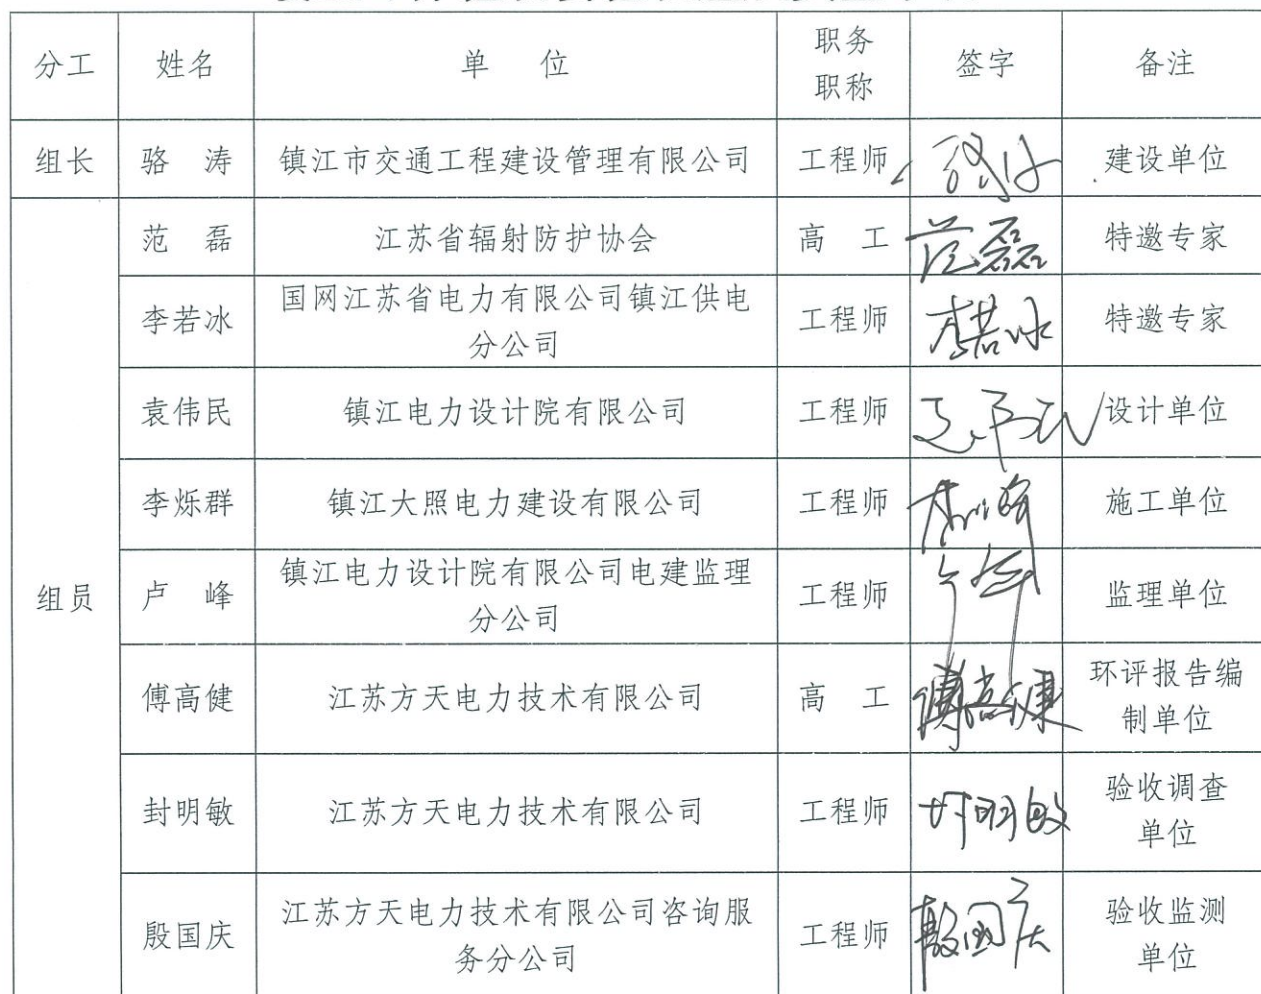 分工 姓名 单 位 职务 签字 备注
职称
组长 骆 涛 镇江市交通工程建设管理有限公司 工程师 建设单位
范 磊 江苏省辐射防护协会 高 工 范磊 特邀专家
李若冰 国网江苏省电力有限公司镇江供电 工程师 李若冰 特邀专家
分公司
袁伟民 镇江电力设计院有限公司 工程师 设计单位
李烁群 镇江大照电力建设有限公司 工程师 施工单位
组员 卢 峰 镇江电力设计院有限公司电建监理 工程师 监理单位
分公司
傅高健 江苏方天电力技术有限公司 高 工 傅高健 环评报告编
制单位
封明敏 江苏方天电力技术有限公司 工程师 封明敏 验收调查
单位
殷国庆 江苏方天电力技术有限公司咨询服 工程师 殷国庆 验收监测
务分公司 单位